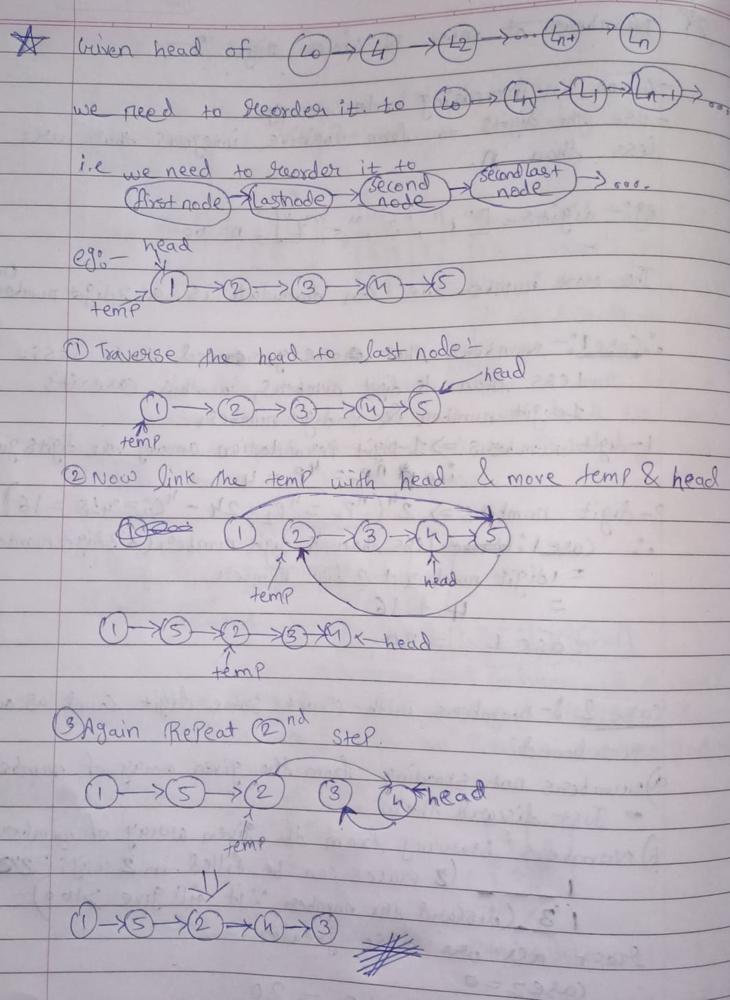 Given head of L0 → L1 → L2 → ... Ln-1 → Ln
we need to reorder it to L0 → Ln → L1 → Ln-1 → ....
i.e we need to reorder it to
first node → lastnode → second node → secondlast node → ....
eg:- head
1 → 2 → 3 → 4 → 5
temp
① Traverse the head to last node:-
head
1 → 2 → 3 → 4 → 5
temp
② Now link the temp with head & move temp & head
1 2 → 3 → 4 → 5
temp head
1 → 5 → 2 → 3 → 4 ← head
temp
③ Again Repeat ②nd step.
1 → 5 → 2 3 4 ← head
temp
⇓
1 → 5 → 2 → 4 → 3